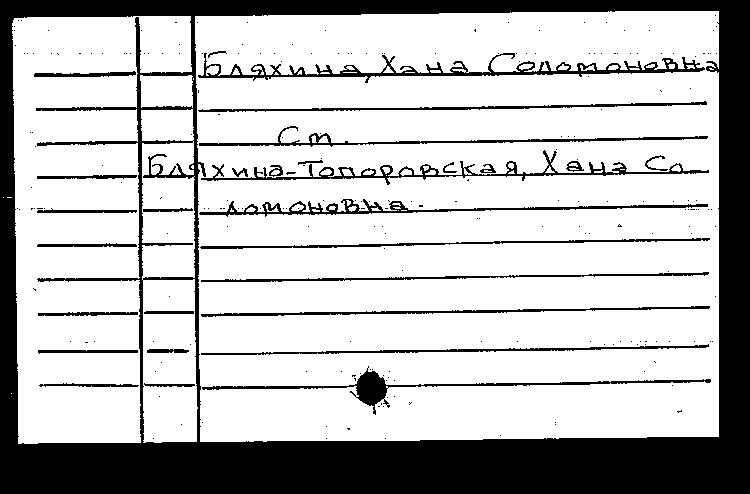 Бляхина, Хана Соломоновна
Ст.
Бляхина-Топоровская, Хана Со
ломоновна.